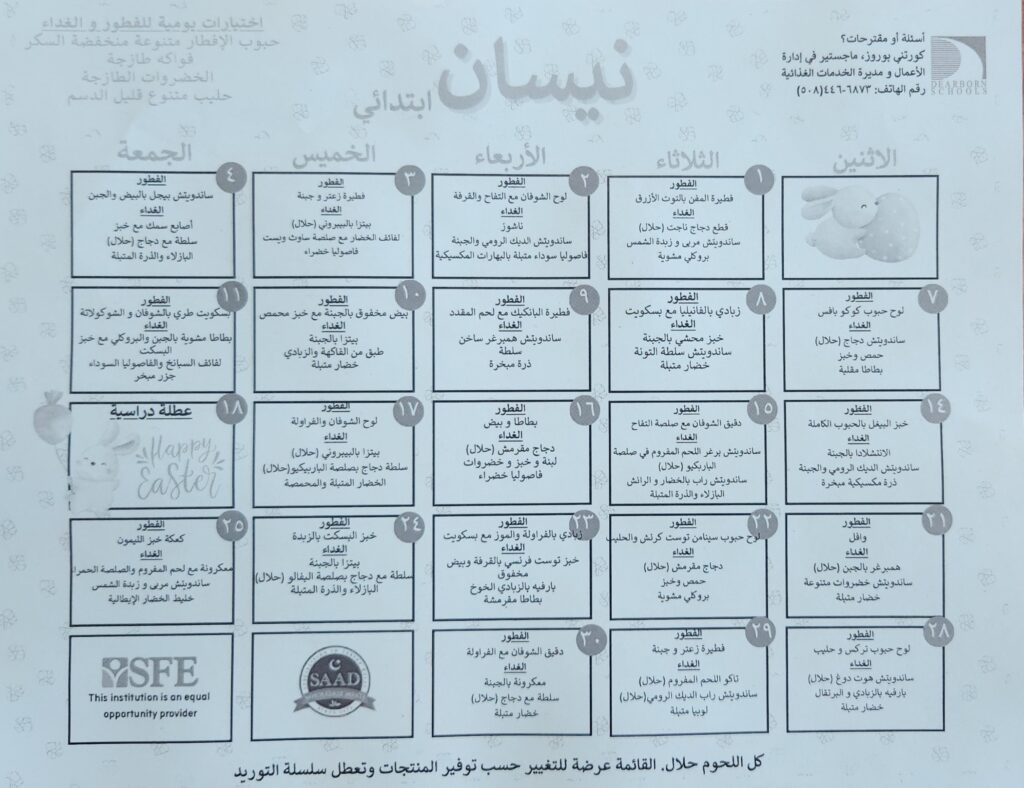 اختيارات يومية للفطور و الغداء
حبوب الإفطار متنوعة منخفضة السكر
فواكه طازجة
الخضروات الطازجة
حليب متنوع قليل الدسم
نيسان ابتدائي
أسئلة أو مقترحات؟
كورتني بوروز، ماجستير في إدارة
الأعمال و مديرة الخدمات الغذائية
رقم الهاتف: ٦٨٧٣-٤٤٦(٥٠٨)
DEARBORN
SCHOOLS
الاثنين
الثلاثاء
الأربعاء
الخميس
الجمعة
١
الفطور
فطيرة المفن بالتوت الأزرق
الغداء
قطع دجاج ناجت (حلال)
ساندويتش مربى و زبدة الشمس
بروكلي مشوية
٢
الفطور
لوح الشوفان مع التفاح والقرفة
الغداء
ناشوز
ساندويتش الديك الرومي والجبنة
فاصوليا سوداء متبلة بالبهارات المكسيكية
٣
الفطور
فطيرة زعتر و جبنة
الغداء
بيتزا بالبيبروني (حلال)
لفائف الخضار مع صلصة ساوث ويست
فاصوليا خضراء
٤
الفطور
ساندويتش بيجل بالبيض والجبن
الغداء
أصابع سمك مع خبز
سلطة مع دجاج (حلال)
البازلاء والذرة المتبلة
٧
الفطور
لوح حبوب كوكو بافس
الغداء
ساندويتش دجاج (حلال)
حمص وخبز
بطاطا مقلية
٨
الفطور
زبادي بالفانيليا مع بسكويت
الغداء
خبز محشي بالجبنة
ساندويتش سلطة التونة
خضار متبلة
٩
الفطور
فطيرة البانكيك مع لحم المقدد
الغداء
ساندويتش همبرغر ساخن
سلطة
ذرة مبخرة
١٠
الفطور
بيض مخفوق بالجبنة مع خبز محمص
الغداء
بيتزا بالجبنة
طبق من الفاكهة والزبادي
خضار متبلة
١١
الفطور
بسكويت طري بالشوفان و الشوكولاتة
الغداء
بطاطا مشوية بالجبن والبروكلي مع خبز
البسكت
لفائف السبانخ والفاصوليا السوداء
جزر مبخر
١٤
الفطور
خبز البيغل بالحبوب الكاملة
الغداء
الانتشلادا بالجبنة
ساندويتش الديك الرومي والجبنة
ذرة مكسيكية مبخرة
١٥
الفطور
دقيق الشوفان مع صلصة التفاح
الغداء
ساندويتش برغر اللحم المفروم في صلصة
الباربكيو (حلال)
ساندويتش راب بالخضار و الرانش
البازلاء والذرة المتبلة
١٦
الفطور
بطاطا و بيض
الغداء
دجاج مقرمش (حلال)
لبنة و خبز و خضروات
فاصوليا خضراء
١٧
الفطور
لوح الشوفان والفراولة
الغداء
بيتزا بالبيبروني (حلال)
سلطة دجاج بصلصة الباربيكيو(حلال)
الخضار المتبلة والمحمصة
١٨
عطلة دراسية
Happy
Easter
٢١
الفطور
وافل
الغداء
همبرغر بالجبن (حلال)
ساندويتش خضروات متنوعة
خضار متبلة
٢٢
الفطور
لوح حبوب سينامن توست كرنش والحليب
الغداء
دجاج مقرمش (حلال)
حمص وخبز
بروكلي مشوية
٢٣
الفطور
زبادي بالفراولة والموز مع بسكويت
الغداء
خبز توست فرنسي بالقرفة وبيض
مخفوق
بارفيه بالزبادي الخوخ
بطاطا مقرمشة
٢٤
الفطور
خبز البسكت بالزبدة
الغداء
بيتزا بالجبنة
سلطة مع دجاج بصلصة البفالو (حلال)
البازلاء والذرة المتبلة
٢٥
الفطور
كعكة خبز الليمون
الغداء
معكرونة مع لحم المفروم والصلصة الحمراء
ساندويتش مربى و زبدة الشمس
خليط الخضار الإيطالية
٢٨
الفطور
لوح حبوب تركس و حليب
الغداء
ساندويتش هوت دوغ (حلال)
بارفيه بالزبادي و البرتقال
خضار متبلة
٢٩
الفطور
فطيرة زعتر و جبنة
الغداء
تاكو اللحم المفروم (حلال)
ساندويتش راب الديك الرومي(حلال)
لوبيا متبلة
٣٠
الفطور
دقيق الشوفان مع الفراولة
الغداء
معكرونة بالجبنة
سلطة مع دجاج (حلال)
خضار متبلة
SAAD
SFE
This institution is an equal
opportunity provider
كل اللحوم حلال. القائمة عرضة للتغيير حسب توفير المنتجات وتعطل سلسلة التوريد